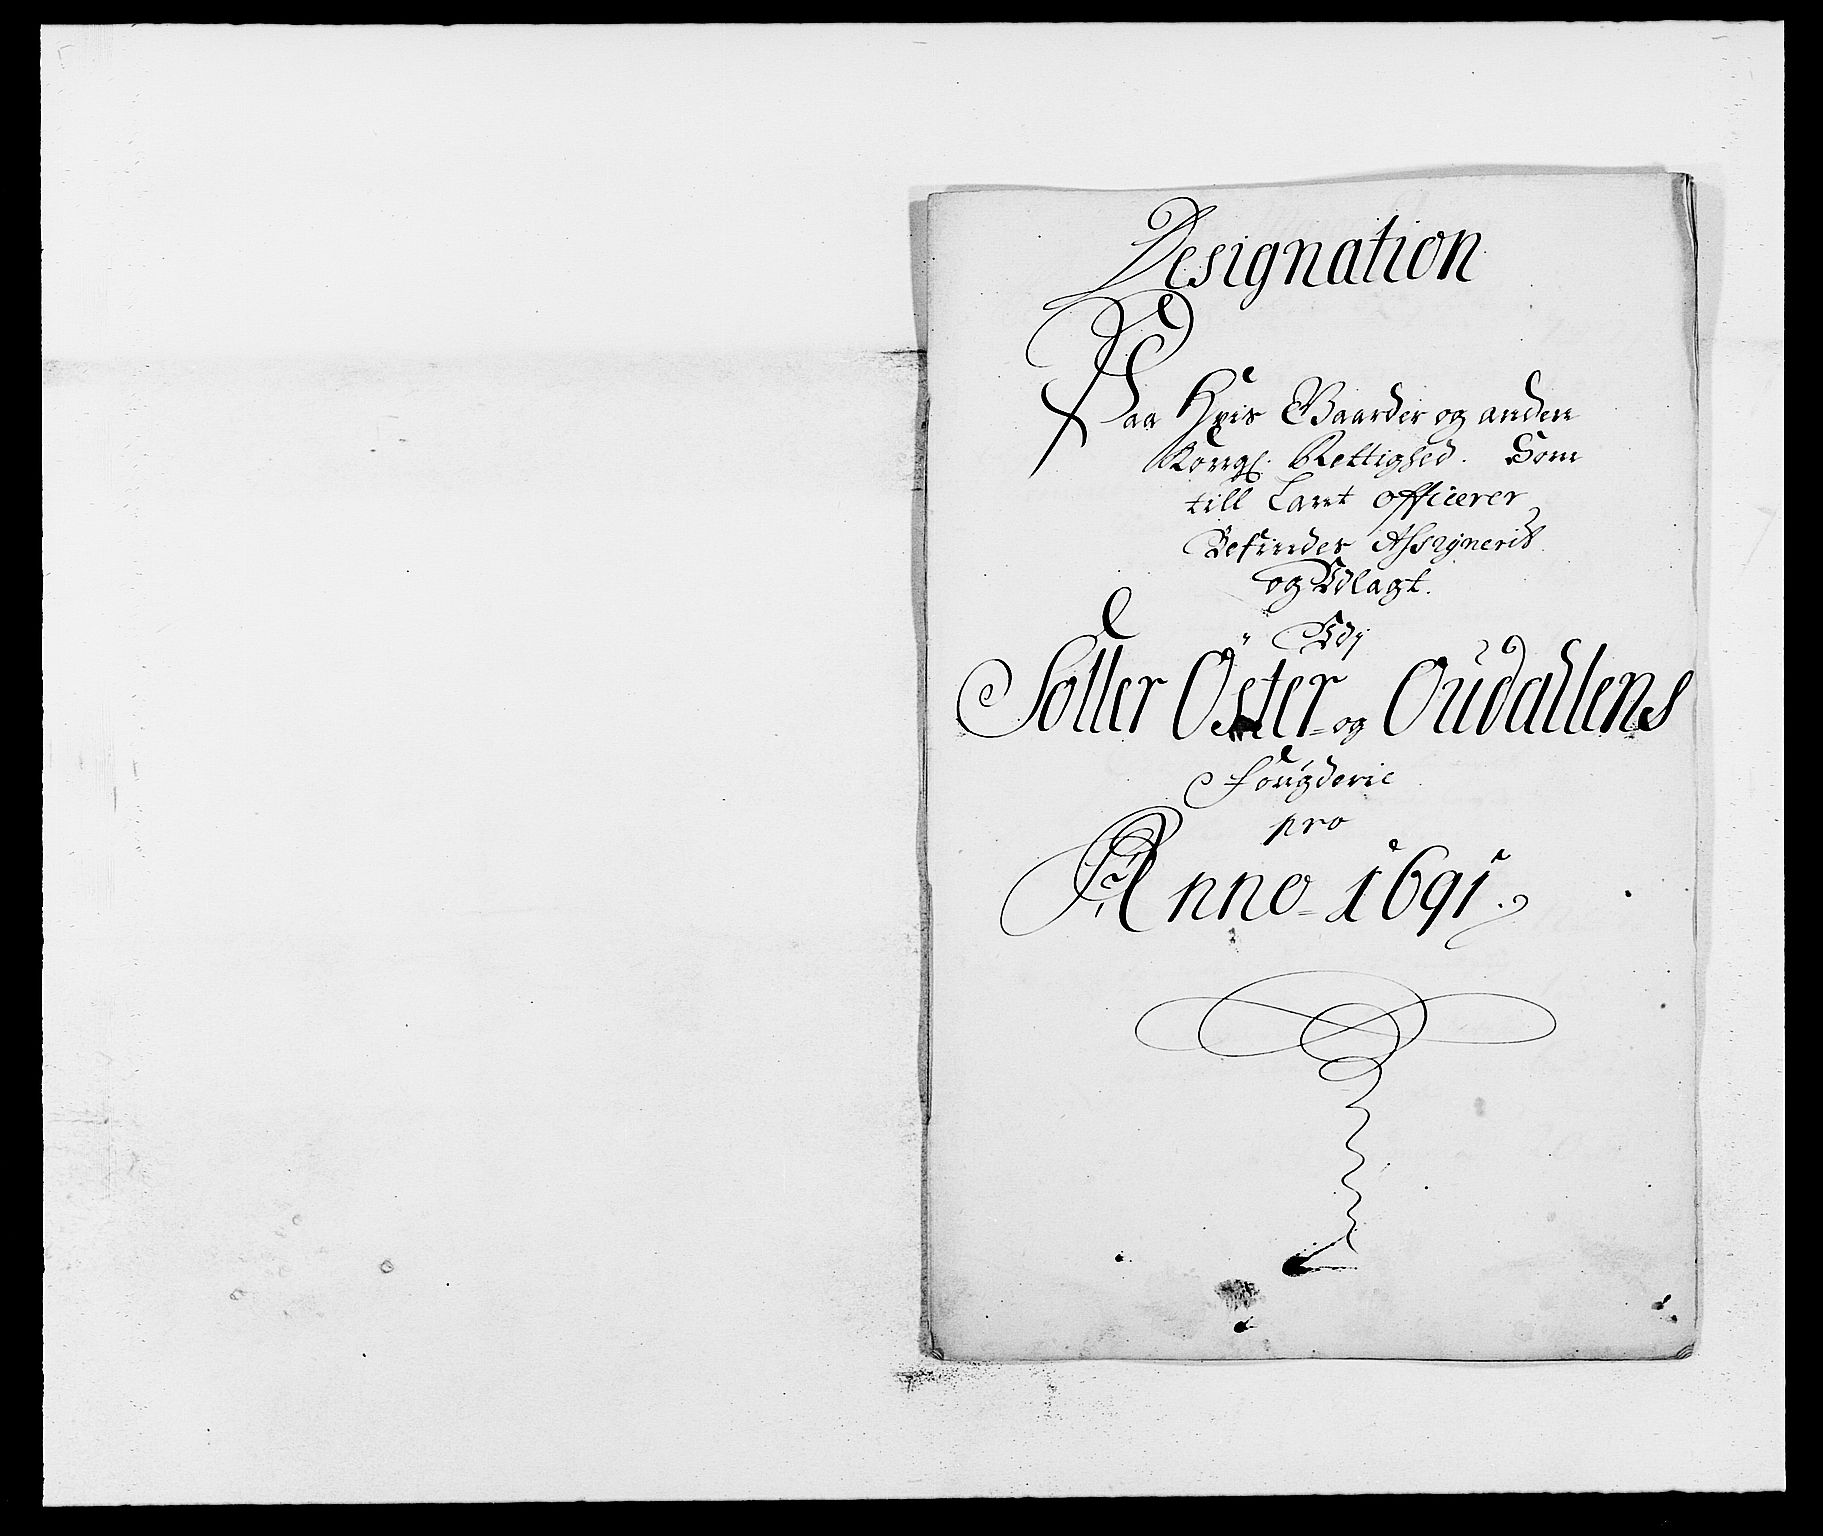 Designation
Paa Hvis Gaarder og anden
Kongl. Rettighed. Som
till Land officerer
Befindes Assignerit
og Udlagt.
Udj
Soller Öster= og Oudallens
Fougderie
pro
Anno= 1691.